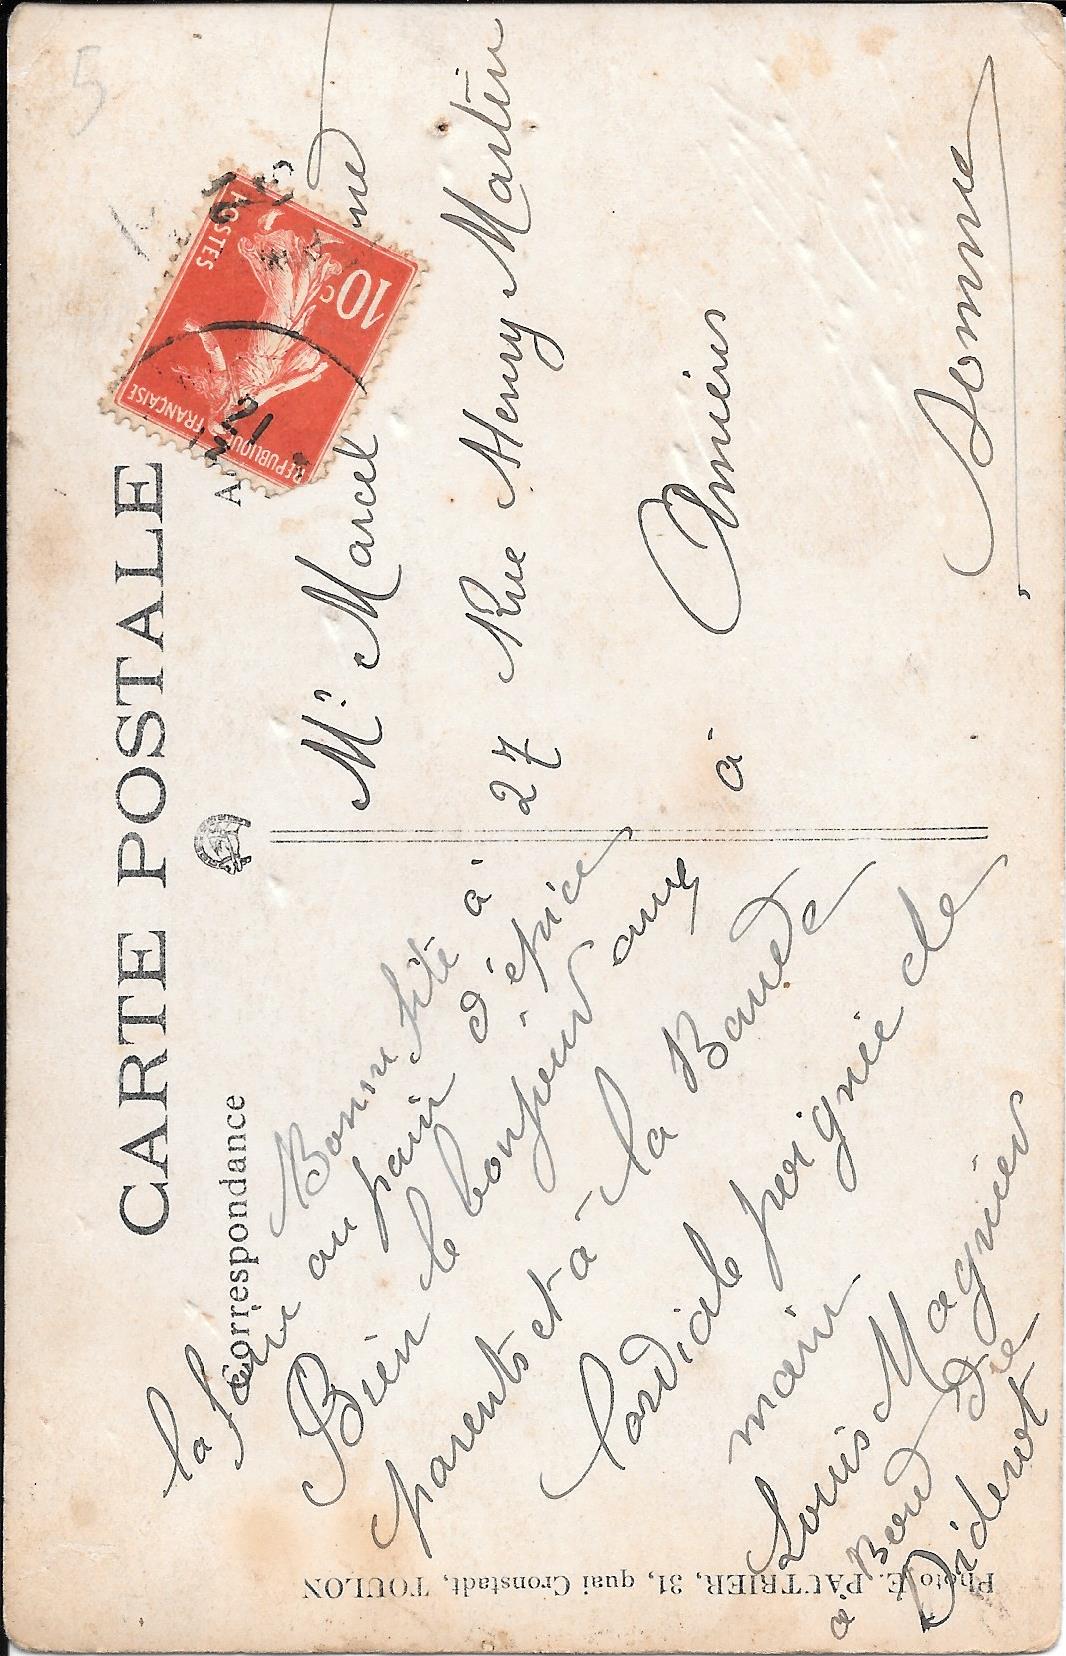 CARTE POSTALE
Correspondance
Bonne fête à
la foire au pain d'épice
Bien le bonjour aux
parents et à la Bande
Cordiale poignée de
main
Louis Magnier
à Bord du
Diderot
Mr Marcel
27 Rue Henry Martin
à Amiens
Somme
REPUBLIQUE FRANÇAISE
POSTES
10c
Photo E. PAUTRIER, 31, quai Cronstadt, TOULON
5